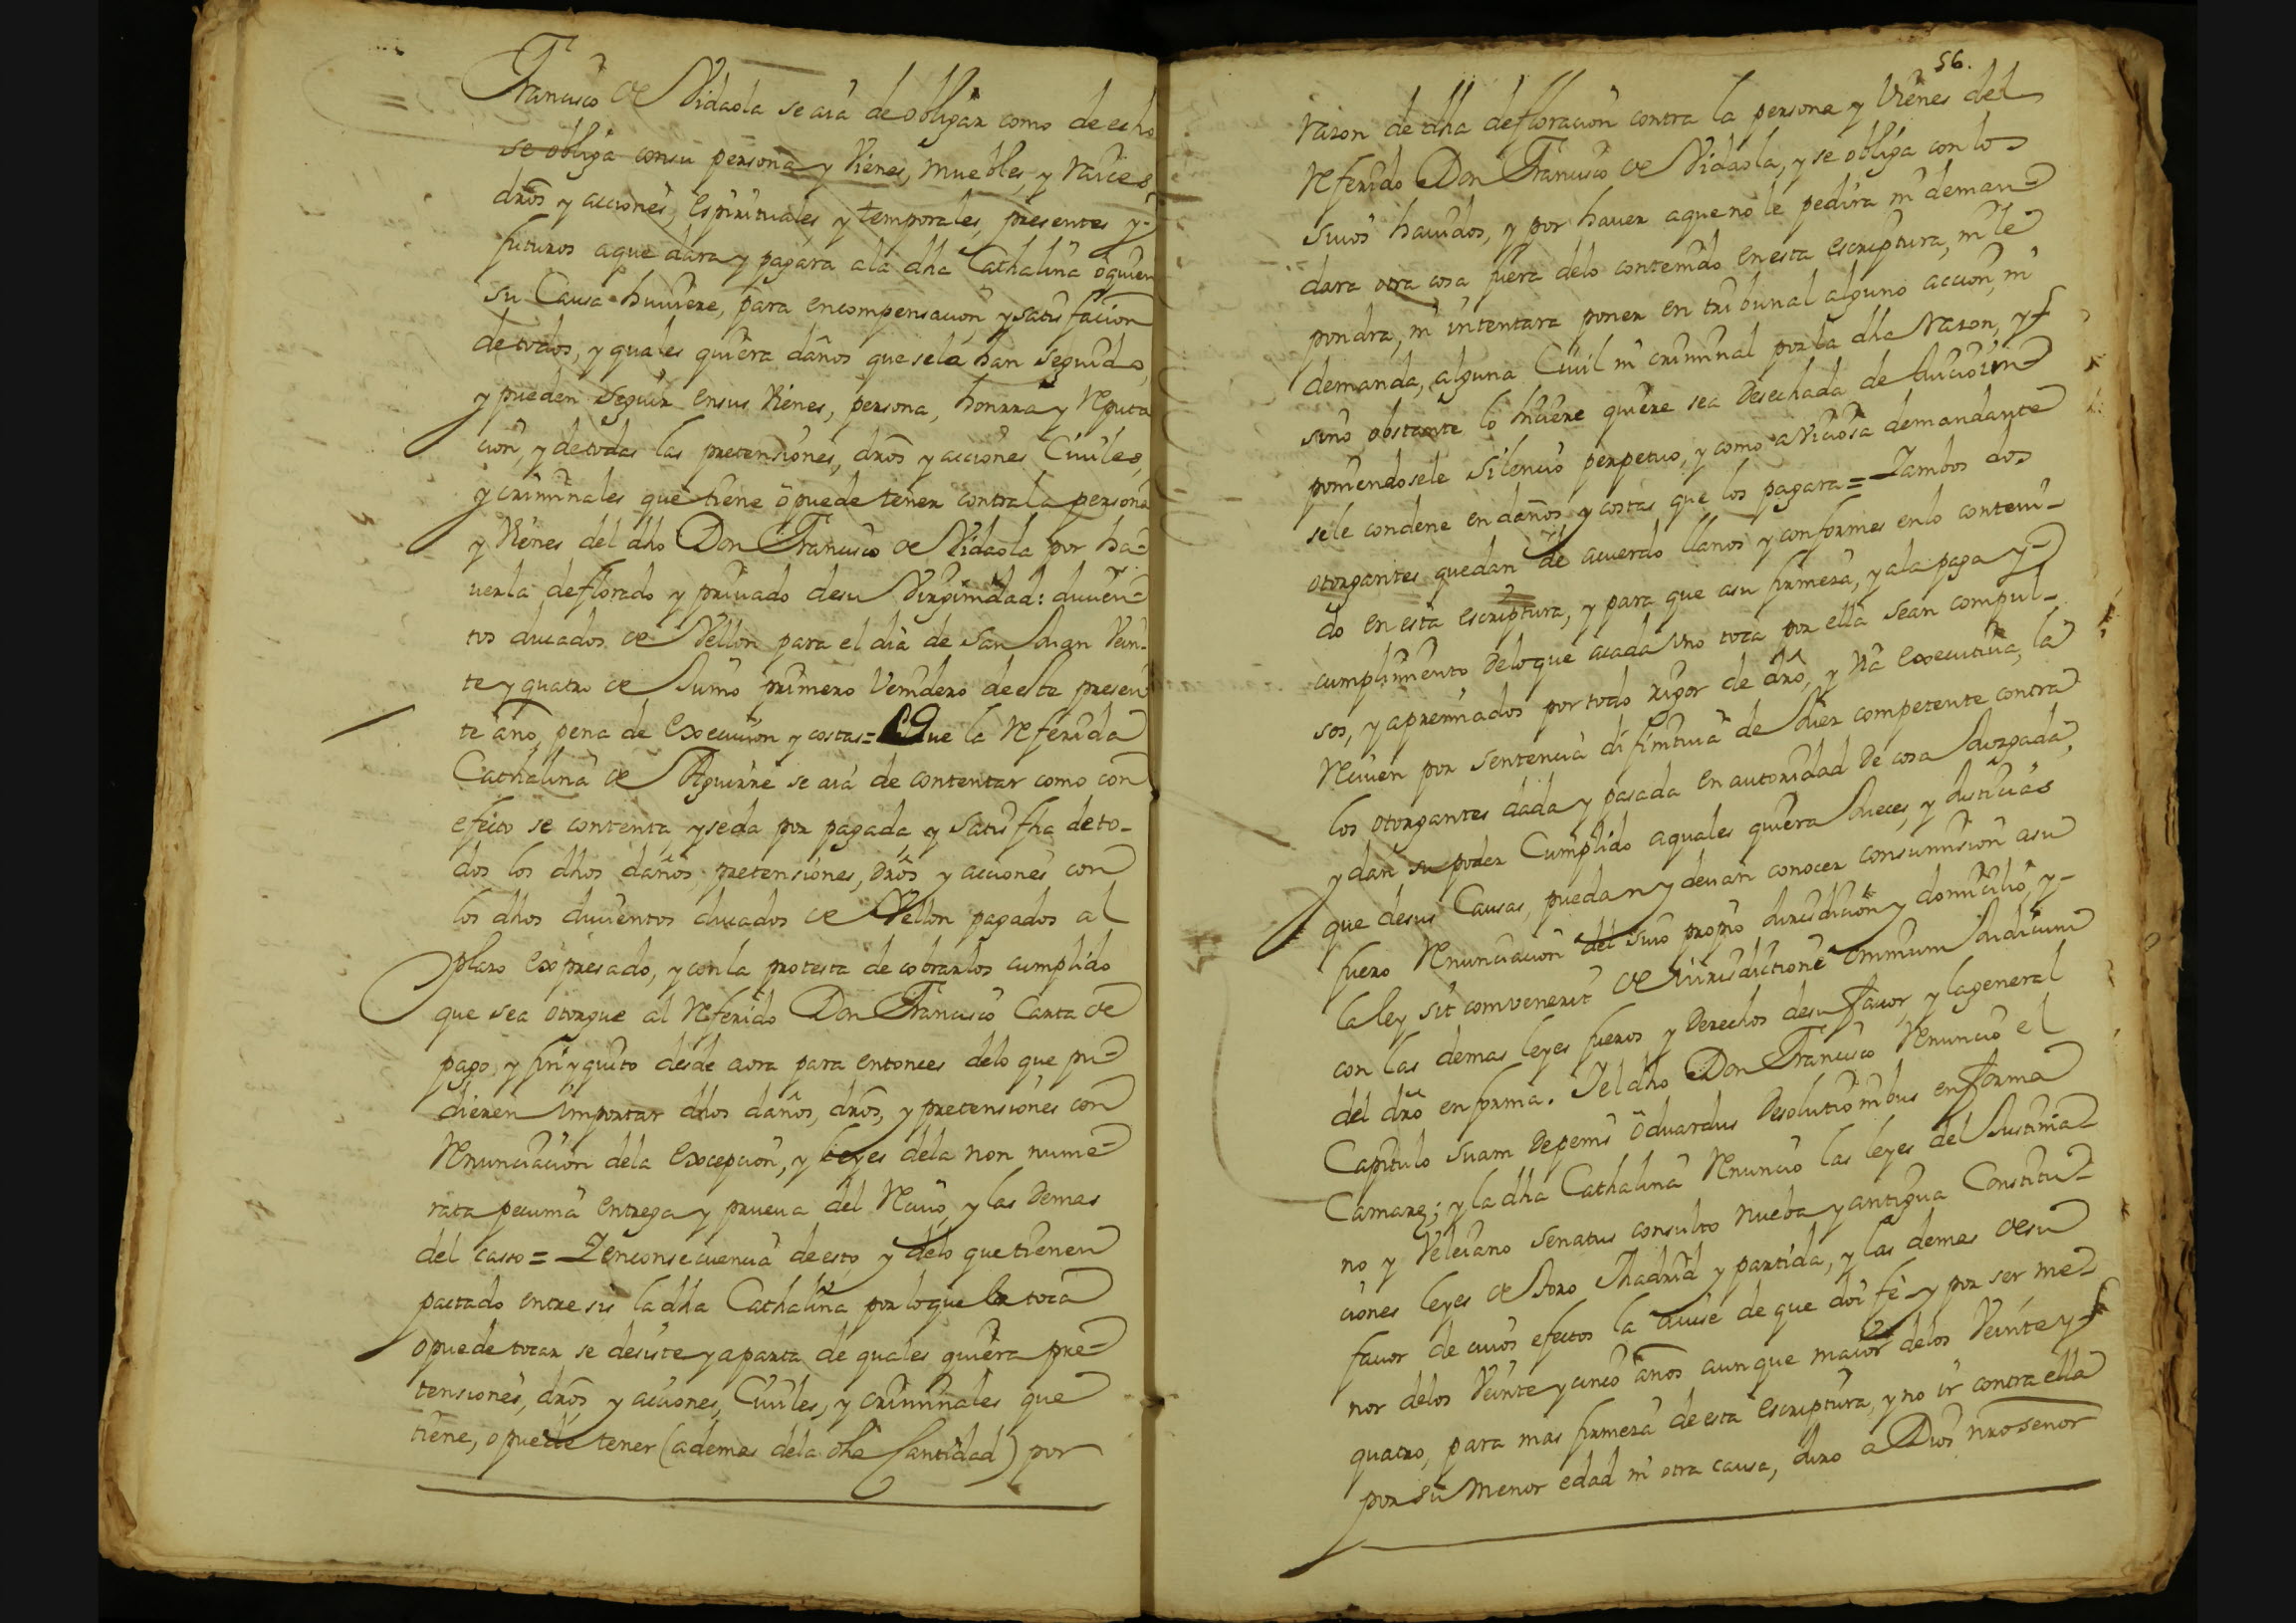 Francisco de Vidaola se aia de obligar como de echo
se obliga con su persona y vienes, muebles, y raices
dros y acciones, espirituales y temporales, presentes y
futuros a que dara y pagara a la dha Cathalina o quien
su Causa huuiere, para encompensacion, y satisfacion
de todos, y quales quiera daños que se la han seguido,
y pueden seguir en sus vienes, persona, honrra y reputa
cion, y de todas las pretensiones, dros y acciones Ciuiles,
y criminales que tiene o puede tener contra la persona
y vienes del dho Don Francisco de Vidaola por ha-
uerla deflorado y priuado de su Virginidad: ducien-
tos ducados de Vellon para el dia de San Juan Vein-
te y quatro de Junio primero Venidero de este presen
te año, pena de execucion y costas= Que la referida
Cathalina de Aguirre se aia de contentar como con
efecto se contenta, y se da por pagada, y satisfha de to-
dos los dhos daños, pretensiones, dros y acciones con
los dhos ducientos ducados de Vellon pagados al
plazo expresado, y con la protesta de cobrarlos cumplido
que sea otorgue al referido Don Francisco Carta de
pago, y finyquito desde aora para entonces de lo que pu-
dieren importar dhos daños, dros, y pretensiones con
renunciacion de la excepcion, y leyes de la non nume-
rata pecunia entrega y prueua del reciuo, y las demas
del caso= Y en consecuencia de esto, y de lo que tienen
pactado entre sis la dha Cathalina por lo que la toca
o puede tocar se desiste y aparta de quales quiera pre-
tensiones, dros, y acciones, Ciuiles, y criminales que
tiene, o puede tener (ademas de la dha Cantidad) por
56.
razon de dha defloracion contra la persona y vienes del
referido Don Francisco de Vidaola, y se obliga con los
suios hauidos, y por hauer a que no le pedira ni deman-
dara otra cosa fuera de lo contenido en esta escriptura, ni le
pondra, ni intentara poner en tribunal alguno accion, ni
demanda, alguna Ciuil ni criminal por la dha razon, y
si no obstante lo hiciere quiere sea desechada de Juicio
poniendosele silencio perpetuo, y como a viciosa demandante
se le condene en daños, y costas que los pagara= Y ambos dos
otorgantes quedan de acuerdo llanos y conformes en lo conteni-
do en esta escriptura, y para que a su firmeza, y a la paga y
cumplimiento de lo que a cada uno toca por ella sean compul-
sos, y apremiados por todo rigor de dro, y via executiua, la
reciuen por sentencia difinitiua de Juez competente contra
los otorgantes dada y pasada en autoridad de cosa Juzgada,
y dan su poder Cumplido a quales quiera Jueces, y Justicias
que de sus Causas, puedan y deuan conocer con sumision a su
fuero renunciacion del suio propio Jurisdicion y domicilio, y
la ley sit combenerit de iurisdictione omnium Judicum
con las demas leyes fueros y derechos de su fauor, y la general
del dro en forma. Y el dho Don Francisco renuncio el
Capitulo suam de penis oduardus de solutionibus en forma
Camare; y la dha Cathalina renuncio las leyes del Justinia-
no y Veleiano senatus consulto nueba y antigua Constitu-
ciones leyes de toro Madrid y partida, y las demas de su
fauor de cuios efectos la auise de que doi fe y por ser me-
nor de los Veinte y cinco años aunque maior de los Veinte y
quatro, para mas firmeza de esta escriptura, y no ir contra ella
por su menor edad ni otra causa, Juro a Dios nro señor